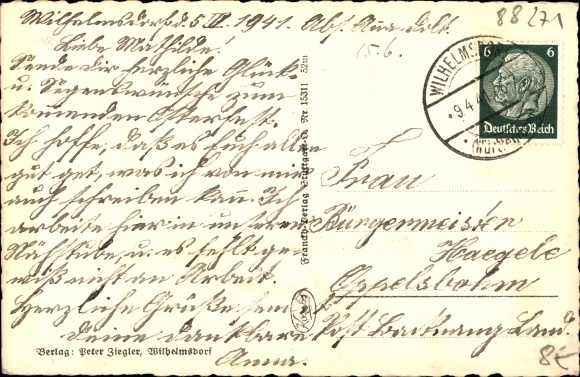 Wilhelmsdorf d. 5. IV. 1941. Abs. Anna
88271
15-6.
Liebe Mathilde!
Sende dir herzliche Glück-
u. Segenswünsche zum
kommenden Osterfest.
Ich hoffe, daß es Euch allen
gut get, was ich von mir
auch schreiben kan. Ich
arbeite hier in unserer
Nähstube, u. es fehlt ge-
wiß nist an Arbeit.
Herzliche Grüße sen
deine dankbare
Anna.
Verlag: Peter Ziegler, Wilhelmsdorf
Franckh-Verlag Stuttgart-O. Nr. 15311 52m
6 6
Deutsches Reich
WILHELMSDORF
9.4.4
(Württ.)
Frau
Bürgermeister
Haegele
Oppelsbohm
Post Backnang Land.
8€